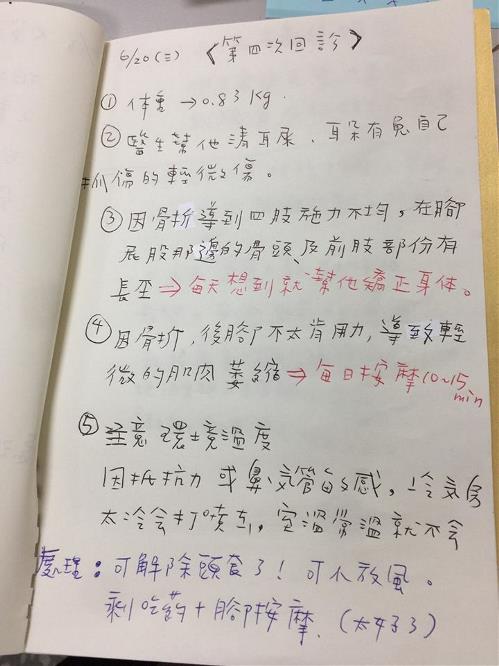 6/20(三) 〈第四次回診〉
① 体重 → 0.83 kg.
② 醫生幫他清耳屎、耳朵有兔自己
抓傷的輕微傷。
③ 因骨折導到四肢施力不均，在腳
屁股那邊的骨頭及前肢部份有
長歪 ⇒ 每天想到就幫他矯正身体。
④ 因骨折，後腳不太肯用力，導致輕
微的肌肉萎縮 ⇒ 每日按摩10~15 min
⑤ 注意環境溫度
因抵抗力或鼻氣管敏感，冷氣房
太冷會打噴嚏，室溫常溫就不會
處理：可解除頭套了！可以放風。
剩吃葯＋腳按摩.（太好了）